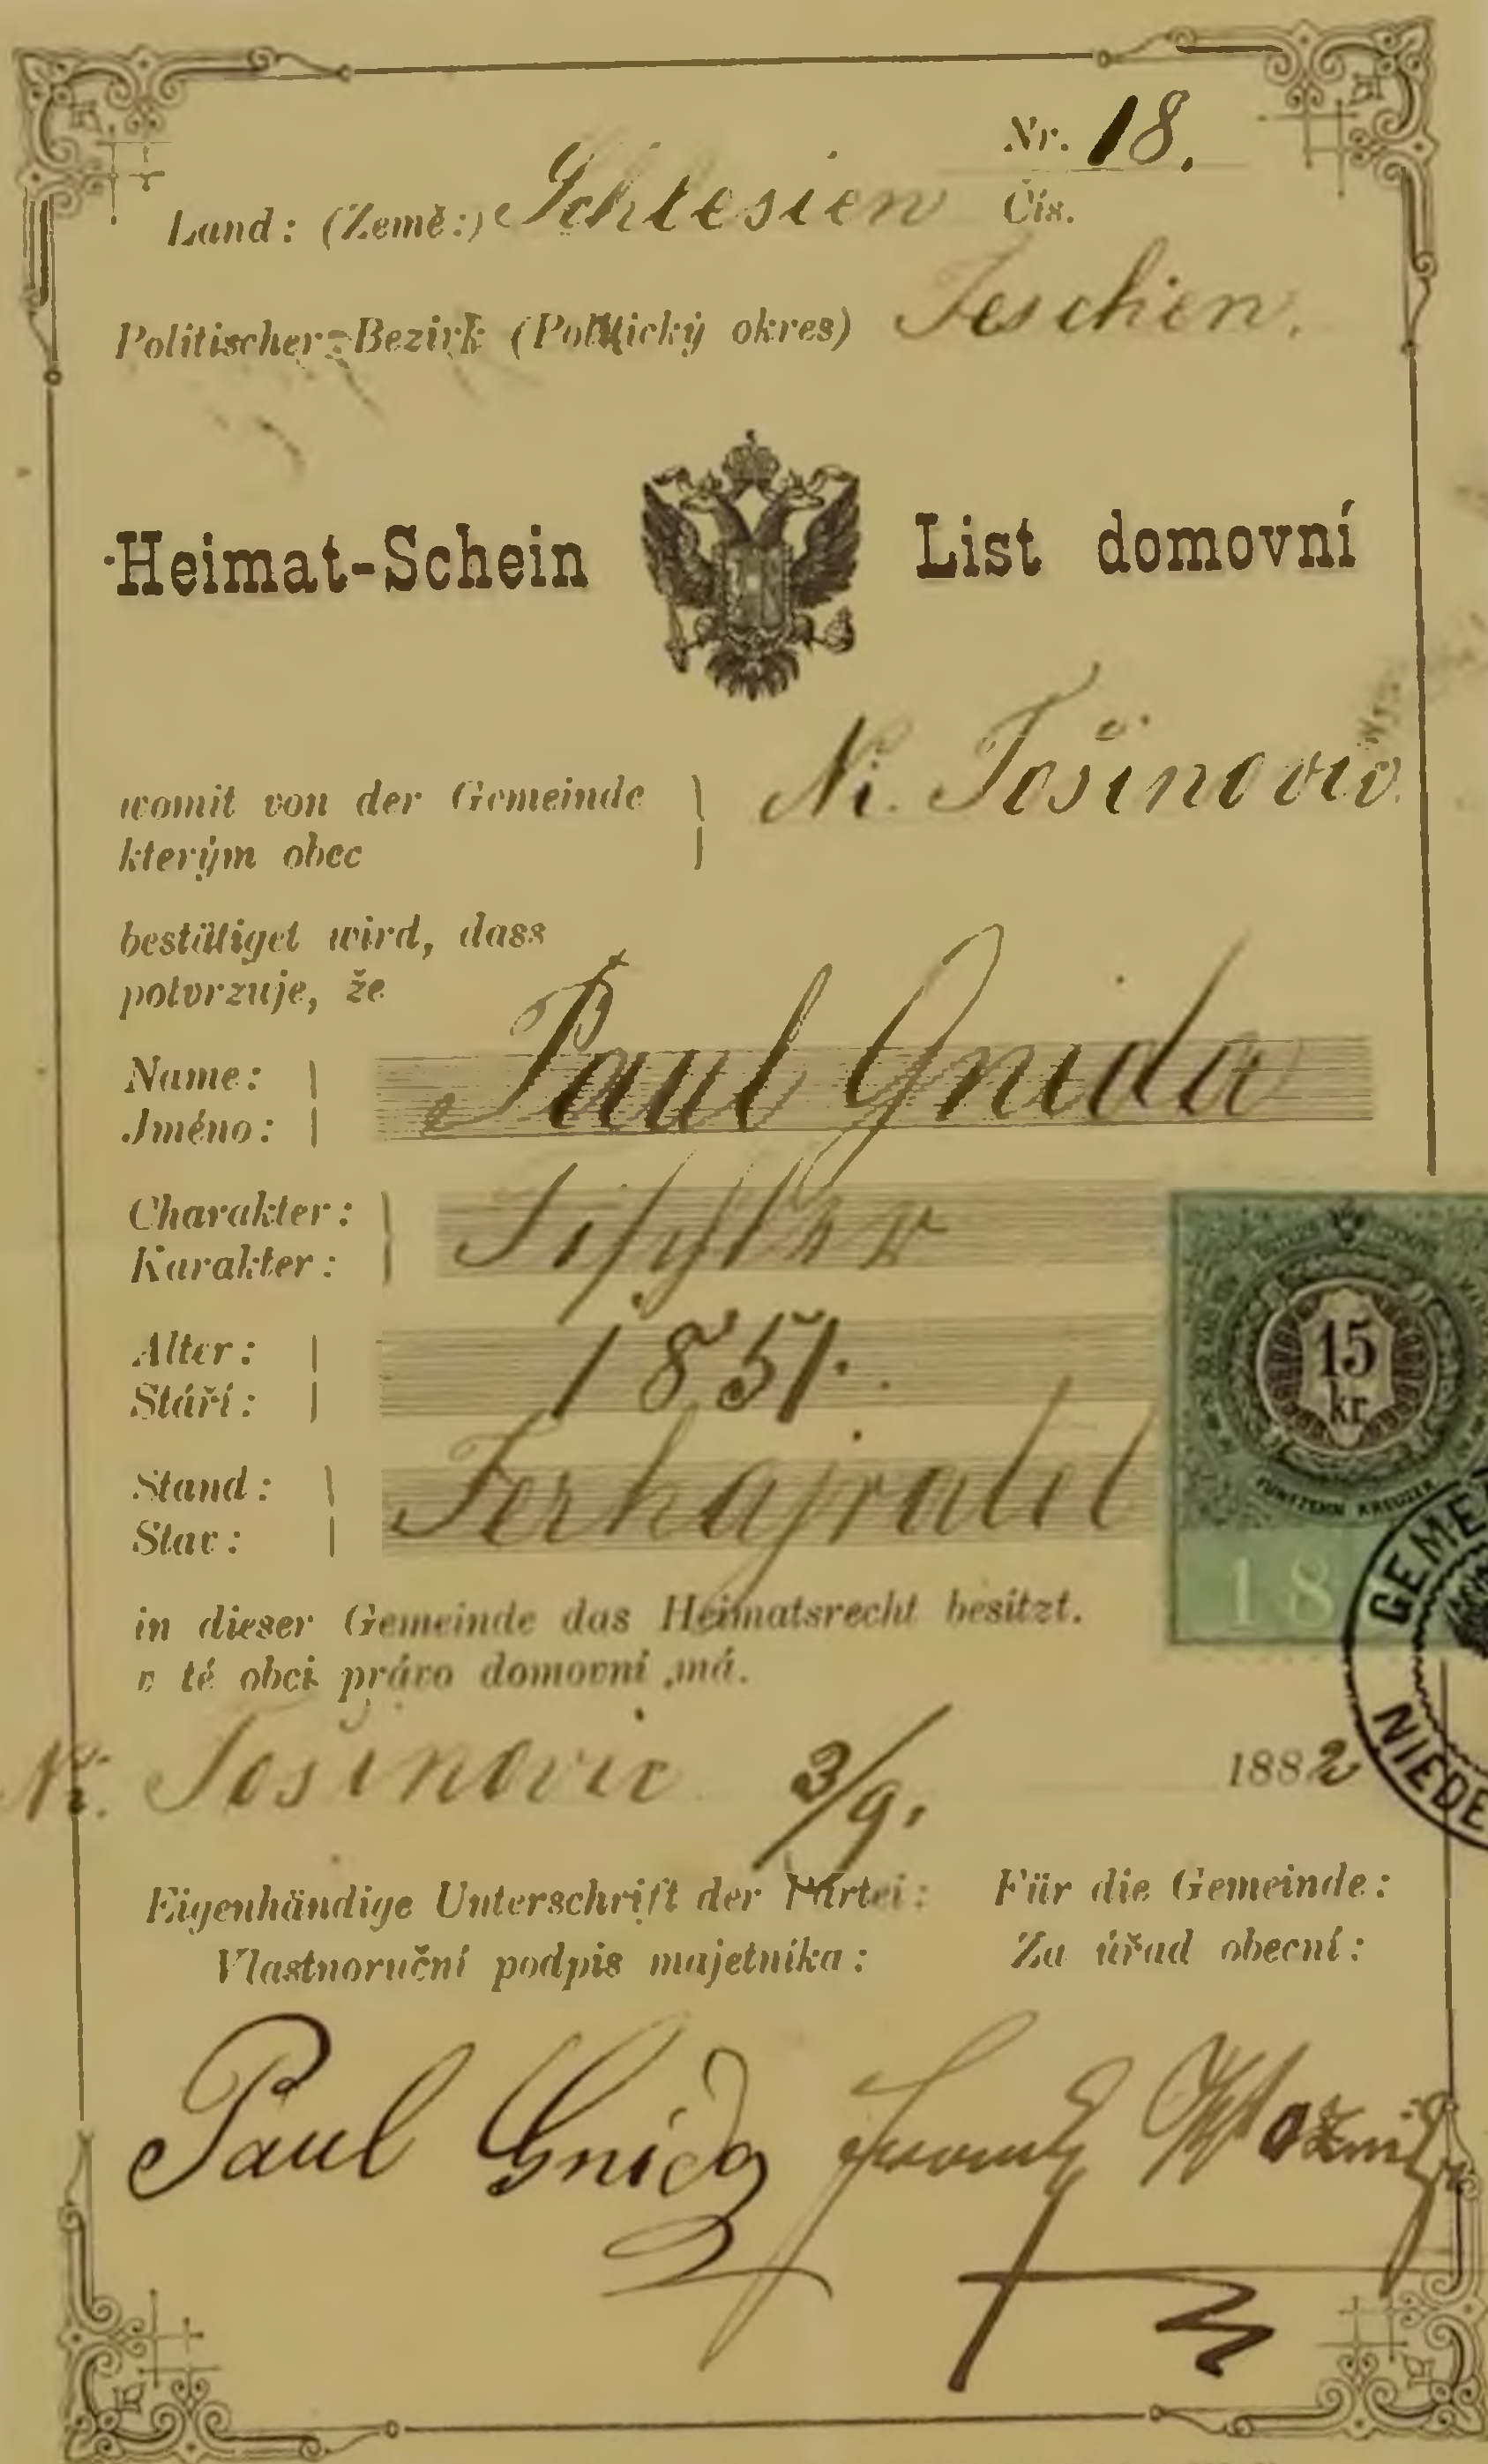 Nr. 18.
Čís.
Land: (Země:) Schlesien
Politischer-Bezirk (Politický okres) Teschen.
Heimat-Schein List domovní
womit von der Gemeinde
kterým obec
Ni. Tošinovic
bestätiget wird, dass
potvrzuje, že
Name: Paul Gnida
Jméno:
Charakter:
Karakter:
Alter: 1851.
Stáří:
Stand: Ferhajratet
Stav:
15
kr
FÜNFZEHN KREUZER
18
in dieser Gemeinde das Heimatsrecht besitzt.
v té obci právo domovní má.
Ni. Tošinovic 3/9. 1882
GEME
NIEDE
Eigenhändige Unterschrift der Partei: Für die Gemeinde:
Vlastnoruční podpis majetníka: Za úřad obecní:
Paul Gnida